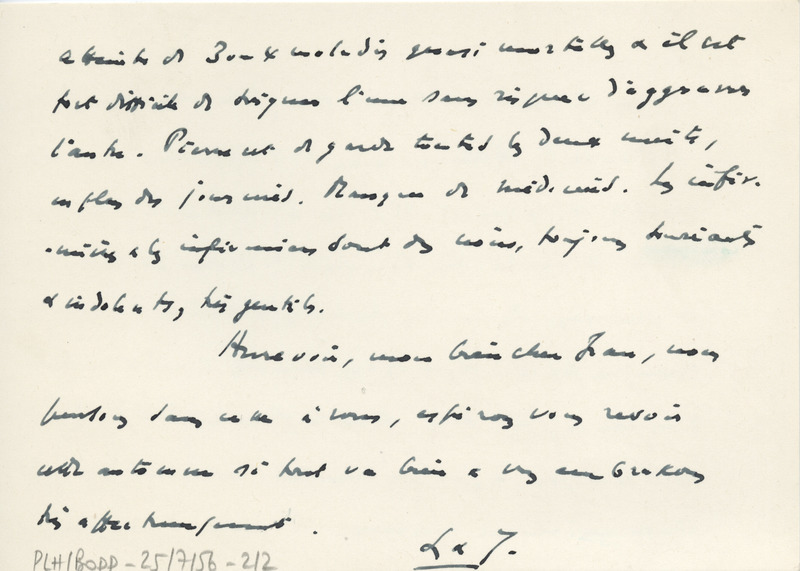 atteintes de 3 ou 4 maladies quasi mortelles & il est
fort difficile de soigner l'une sans risquer d'aggraver
l'autre. Pierre est de garde toutes les deux nuits,
en plus des journées. Manque de médecins. Les infir-
-mières & les infirmiers sont des noirs, toujours souriants
& indolents, très gentils.
Au revoir, mon bien cher Jean, nous
pensons sans cesse à vous, espérons vous revoir
cet automne si tout va bien & vous embrassons
très affectueusement.
L & J.
PLH/BODD - 25/7/56 - 2/2